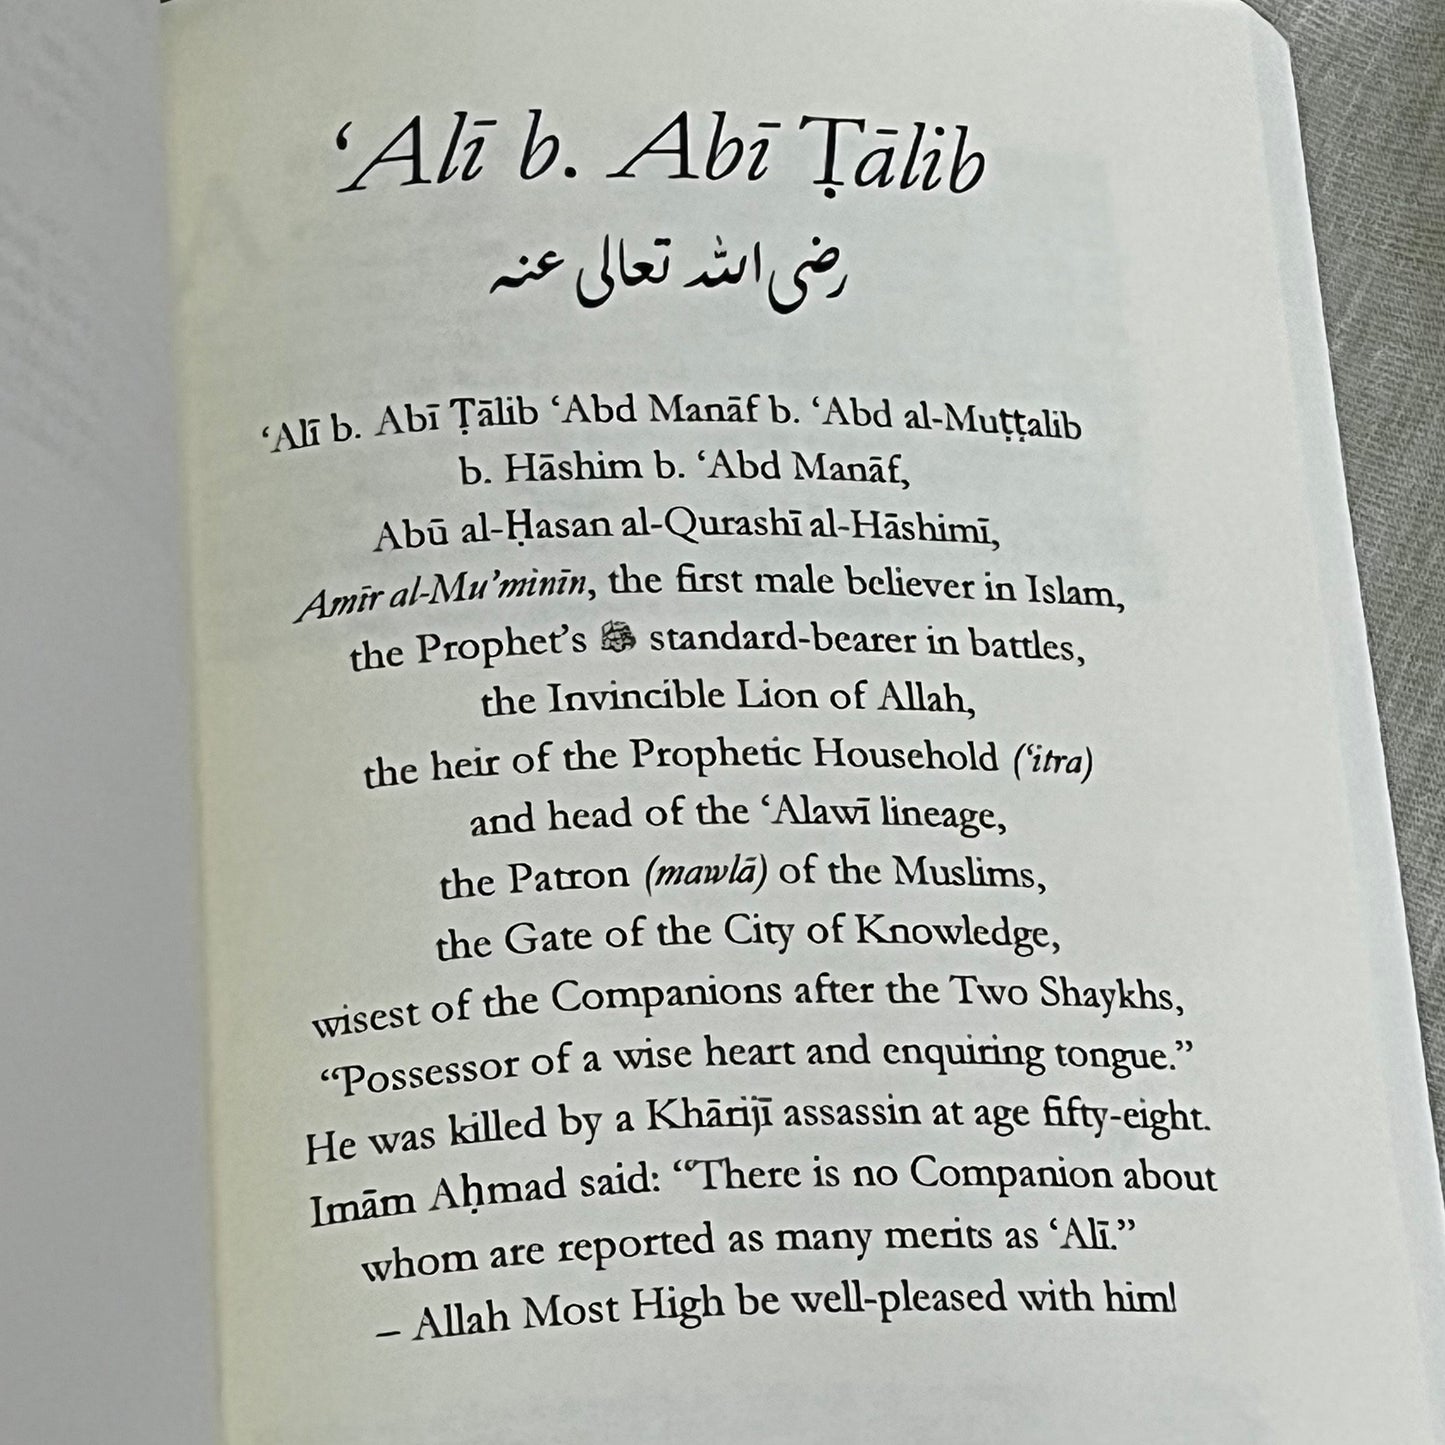 ‘Alī b. Abī Ṭālib
رضی الله تعالی عنه
‘Alī b. Abī Ṭālib ‘Abd Manāf b. ‘Abd al-Muṭṭalib
b. Hāshim b. ‘Abd Manāf,
Abū al-Ḥasan al-Qurashī al-Hāshimī,
Amīr al-Mu’minīn, the first male believer in Islam,
the Prophet’s ﷺ standard-bearer in battles,
the Invincible Lion of Allah,
the heir of the Prophetic Household (‘itra)
and head of the ‘Alawī lineage,
the Patron (mawlā) of the Muslims,
the Gate of the City of Knowledge,
wisest of the Companions after the Two Shaykhs,
“Possessor of a wise heart and enquiring tongue.”
He was killed by a Khārijī assassin at age fifty-eight.
Imām Aḥmad said: “There is no Companion about
whom are reported as many merits as ‘Alī.”
– Allah Most High be well-pleased with him!